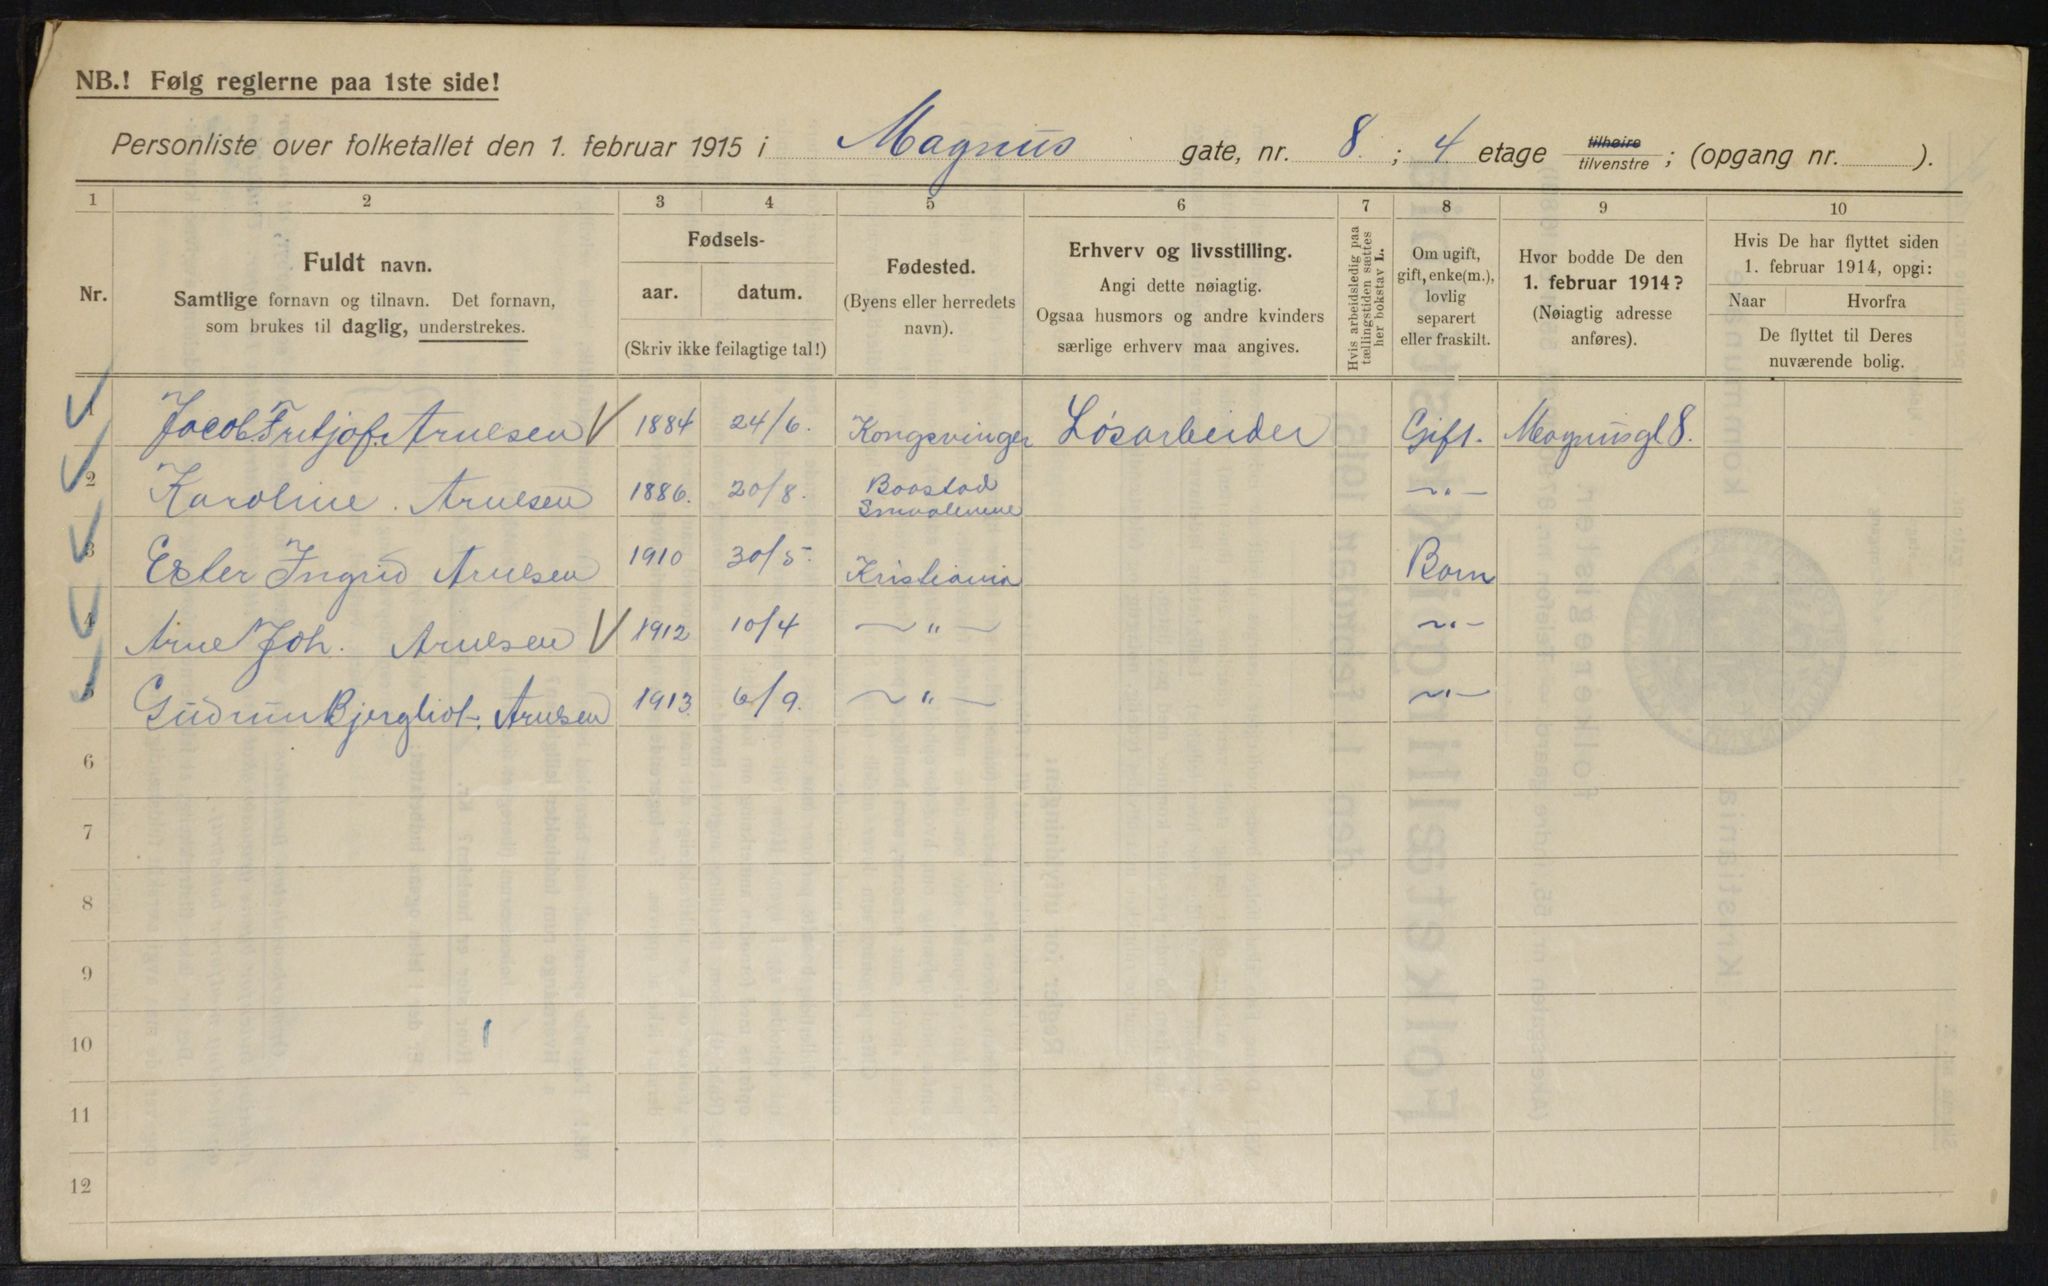 NB.! Følg reglerne paa 1ste side!
Personliste over folketallet den 1. februar 1915 i Magnus gate, nr. 8. ; 4 etage tilhøire tilvenstre ; (opgang nr. ).
1 2 3 4 5 6 7 8 9 10
Nr.
Fuldt navn.
Samtlige fornavn og tilnavn. Det fornavn,
som brukes til daglig, understrekes.
Fødsels-
aar. datum.
(Skriv ikke feilagtige tal!)
Fødested.
(Byens eller herredets
navn).
Erhverv og livsstilling.
Angi dette nøiagtig.
Ogsaa husmors og andre kvinders
særlige erhverv maa angives.
Hvis arbeidsledig paa
tællingstiden sættes
her bokstav L.
Om ugift,
gift, enke(m.),
lovlig
separert
eller fraskilt.
Hvor bodde De den
1. februar 1914?
(Nøiagtig adresse
anføres).
Hvis De har flyttet siden
1. februar 1914, opgi:
Naar Hvorfra
De flyttet til Deres
nuværende bolig.
1 Jacob Fritjof. Arnesen V 1884 24/6. Kongsvinger Løsarbeider Gift. Magnusgt 8.
2 Karoline. Arnesen 1886. 20/8. Baastad Smaalenene —"—
3 Ester Ingrid Arnesen 1910 30/5. Kristiania Barn
4 Arne Joh. Arnesen V 1912 10/4 —"— —"—
5 Gudrun Bjergliot. Arnesen 1913. 6/9. —"— —"—
6
7
8
9
10
11
12